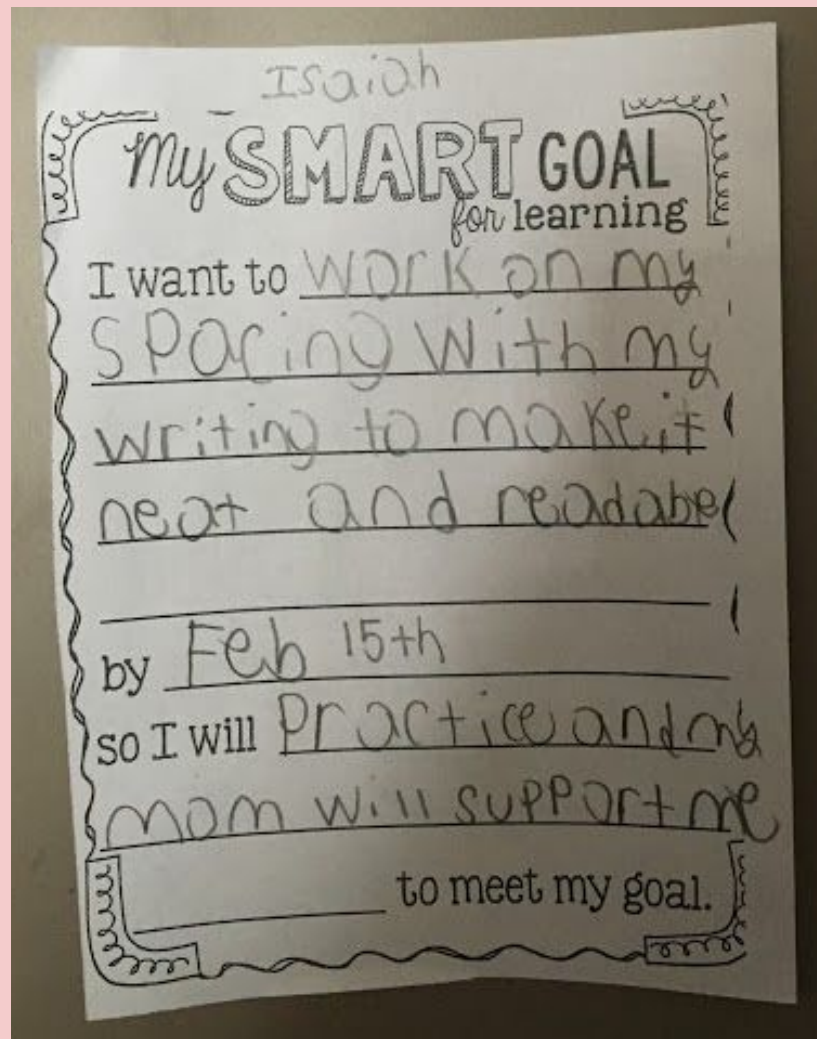 Isaiah
My SMART GOAL
for learning
I want to work on my
spacing with my
writing to make it
neat and readabe
by Feb 15th
so I will practice and my
mom will support me
to meet my goal.